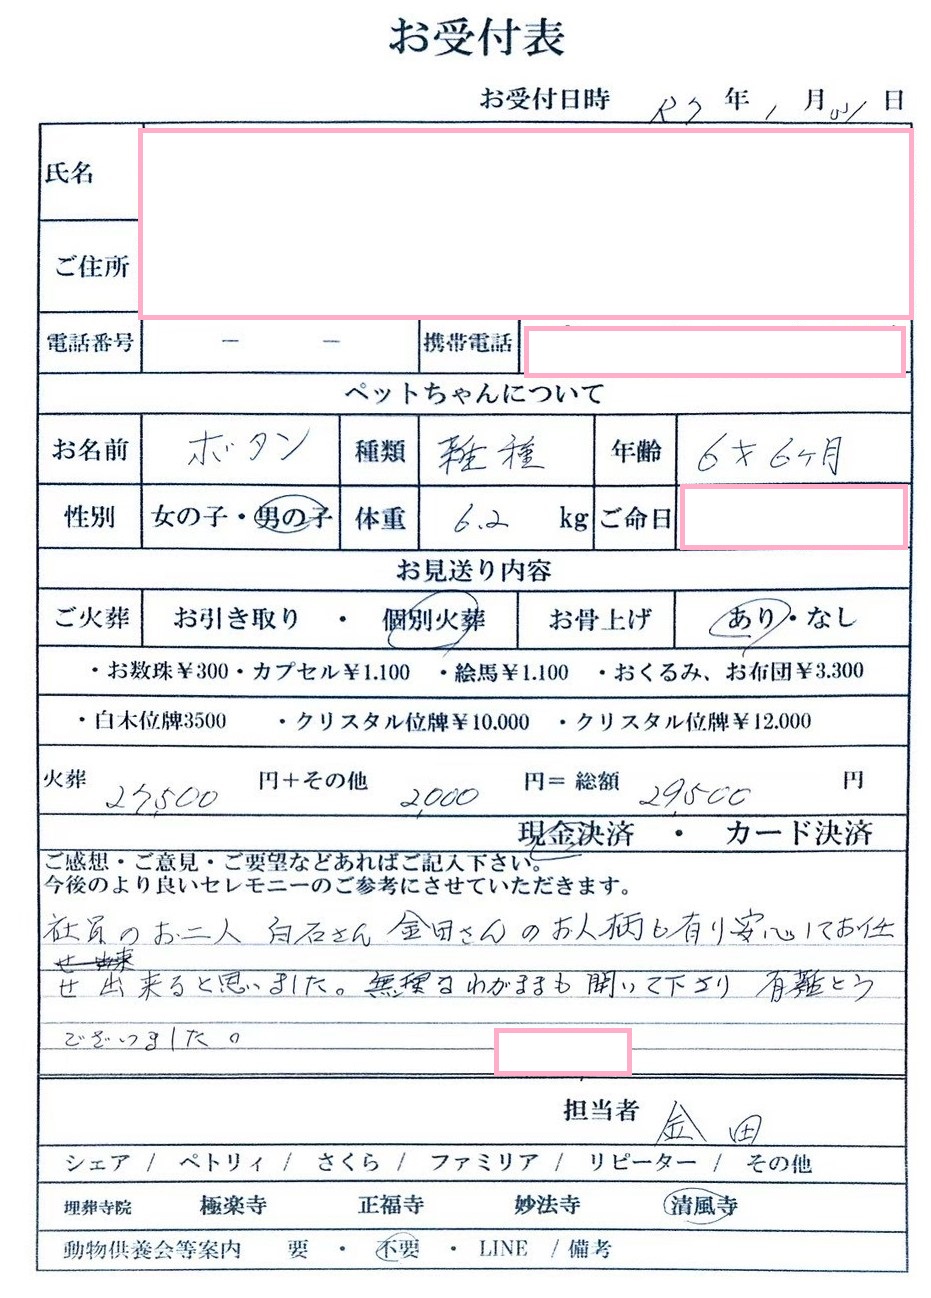 お受付表
お受付日時 R7年1月31日
氏名
ご住所
電話番号 － － 携帯電話
ペットちゃんについて
お名前 ボタン 種類 雑種 年齢 6才6ヶ月
性別 女の子・男の子 体重 6.2 kg ご命日
お見送り内容
ご火葬 お引き取り ・ 個別火葬 お骨上げ あり・なし
・お数珠¥300・カプセル¥1.100 ・絵馬¥1.100 ・おくるみ、お布団¥3.300
・白木位牌3500 ・クリスタル位牌¥10.000 ・クリスタル位牌¥12.000
火葬 27,500 円＋その他 2,000 円＝ 総額 29,500 円
現金決済 ・ カード決済
ご感想・ご意見・ご要望などあればご記入下さい。
今後のより良いセレモニーのご参考にさせていただきます。
社員のお二人 白石さん 金田さんのお人柄も有り安心してお任
せ出来
せ出来ると思いました。無理なわがままも聞いて下さり 有難とう
ございました。
担当者 金田
シェア / ペトリィ / さくら / ファミリア / リピーター / その他
埋葬寺院 極楽寺 正福寺 妙法寺 清風寺
動物供養会等案内 要 ・ 不要 ・ LINE / 備考